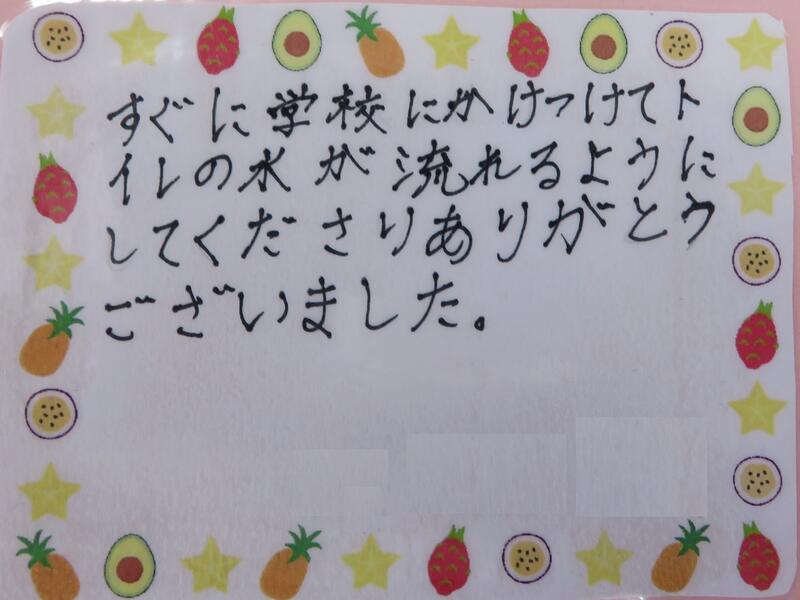 すぐに学校にかけつけてト
イレの水が流れるように
してくださりありがとう
ございました。